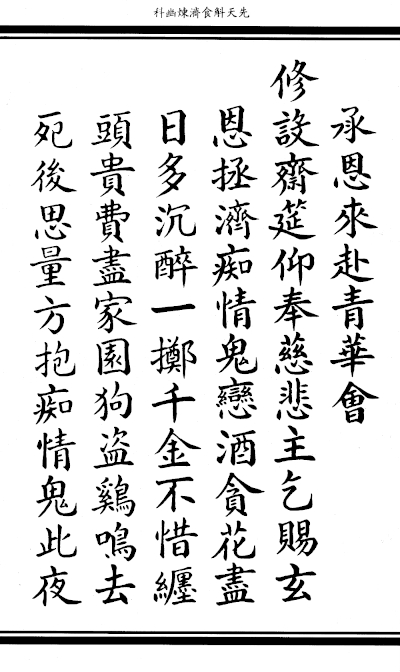 先天斛食濟煉幽科
承恩來赴青華會
修設齋筵仰奉慈悲主乞賜玄
恩拯濟痴情鬼戀酒貪花盡
日多沉醉一擲千金不惜纏
頭貴費盡家園狗盗鷄鳴去
死後思量方抱痴情鬼此夜